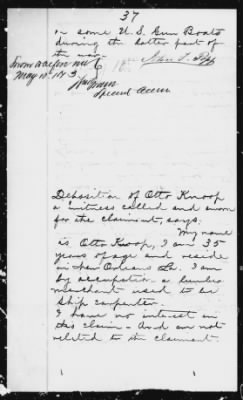 37
on some U. S. Gun Boats
during the latter part of
the war.
Sworn
May
Special
Deposition of Otto Knoop
a witness called and sworn
for the claimant, says:
My name
is Otto Knoop, I am 35
years of age and reside
in New Orleans La. I am
by occupation a lumber
merchant used to be
Ship carpenter.
I have no interest in
this claim - And am not
related to the claimant.